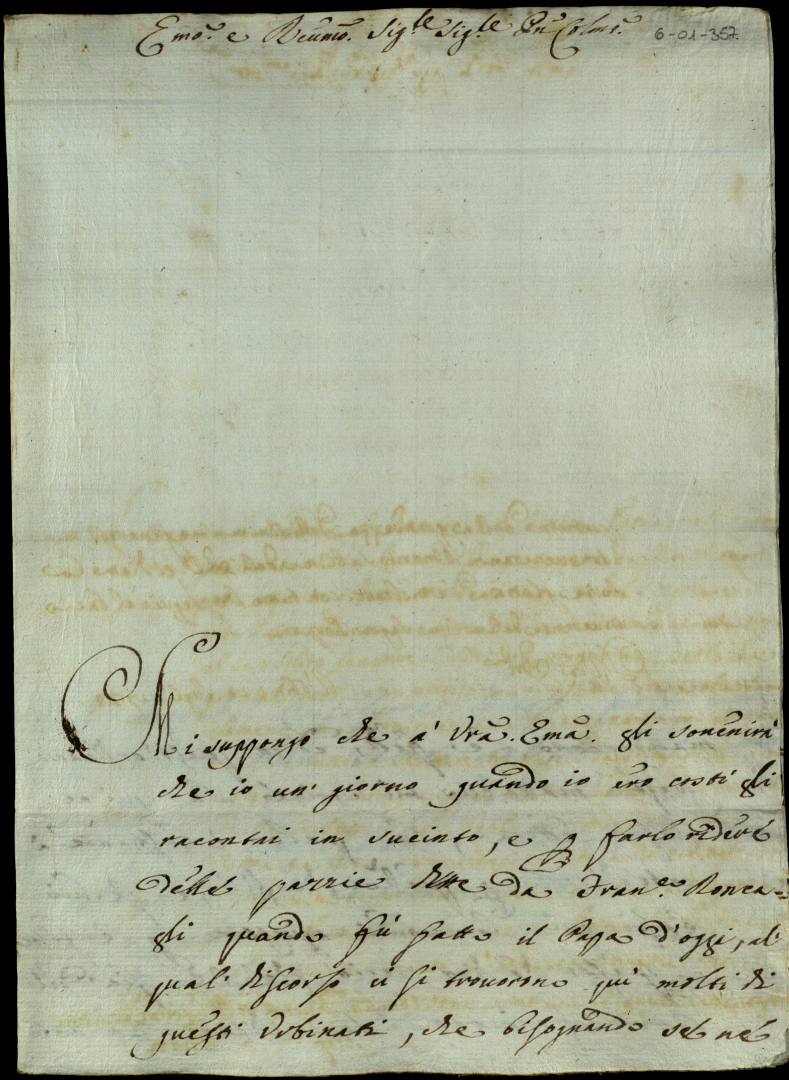 Emo. e Reumo. Sig.le Sig.le Pn. Colmo. 6-01-357.
Mi suppongo che a' Vra. Ema. gli souenira
che io un' giorno quando io ero costi gli
racontai in sucinto, e p farlo ridere
delle pazzie dette da Fran.co Ronca=
gli quando fù fatto il Papa d'oggi, al'
qual' discorso ci si trouorono qui molti di
questi Vrbinati, che bisognando se ne